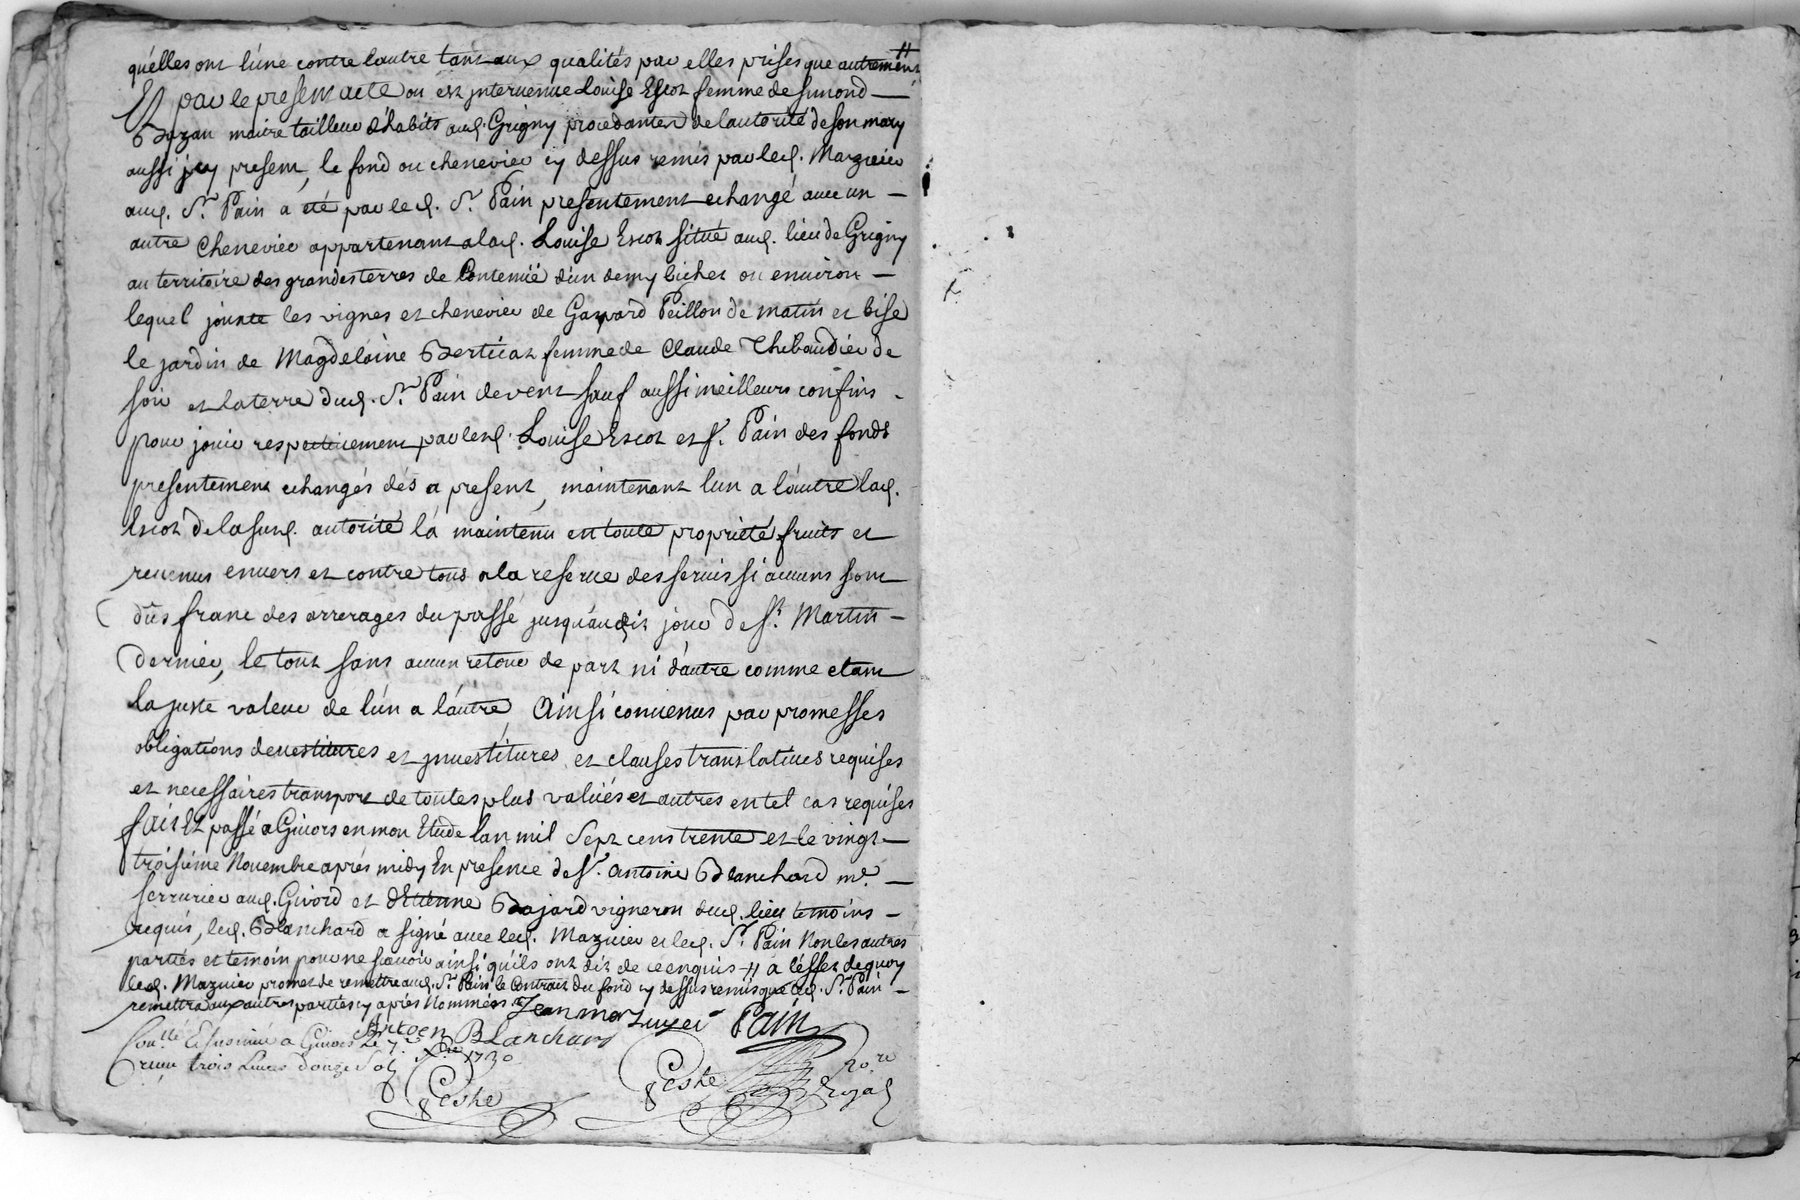 qu'elles ont l'une contre lautre tant aux qualités par elles prises que autrement #
Et par le present acte ou est intervenue Louise Escot femme de simond
Bozan maitre tailleur d'habits aud. Grigny procedantes de lautorité de son mary
aussi jcy present, le fond ou chenevier cy dessus remis par led. Maznier
aud. Sr. Pain a été par led. Sr. Pain presentement echangé avec un
autre chenevier appartenant a lad. Louise Escot situé aud. lieu de Grigny
au territoire des grandes terres de Contenüe d'un demy bichet ou environ
lequel jouxte les vignes et chenevier de Gaspard Peillon de matin et bise
le jardin de Magdelaine Berticat femme de Claude Thibaudier de
soir et la terre dud. Sr. Pain de vent sauf aussi meilleurs confins
pour jouir respectivement par lesd. Louise Escot et Sr. Pain des fonds
presentement echangés dés a present, maintenant lun a l'autre lad.
Escot de la susd. autorité la maintenu en toute proprieté fruits et
revenus envers et contre tous a la reserve des servis si aucuns sont
dûs franc des arrerages du passé jusqu'audit jour de St. Martin
dernier, le tout sans aucun retour de part ni d'autre comme etant
la juste valeur de l'un a l'autre, Ainsi convenus par promesses
obligations devestitures et jnvestitures et clauses translatives requises
et necessaires transport de toutes plus values et autres en tel cas requises
fait Et passé a Givors en mon Etude lan mil sept cens trente et le vingt
troisiéme Novembre aprés midy En presence de Sr. Antoine Blanchard me.
serrurier aud. Givord et d'Etienne Bajard vigneron dud. lieu temoins
requis, led. Blanchard a signé avec led. Maznier et led. Sr. Pain Non les autres
partiés et temoin pour ne sçavoir ainsi qu'ils ont dit de ce enquis # a l'effet de quoy
led. Maznier promet de remettre aud. Sr. Pain le Contrat du fond cy dessus remis que led. Sr. Pain
remettra aux autres parties cy aprés Nommées
Jean Pain
Blanchard
Con.llé Et Insinué a Givors Le 7e. Xbre 1730
reçu trois Livres douze Sols
Geste Geste No.re
Royal